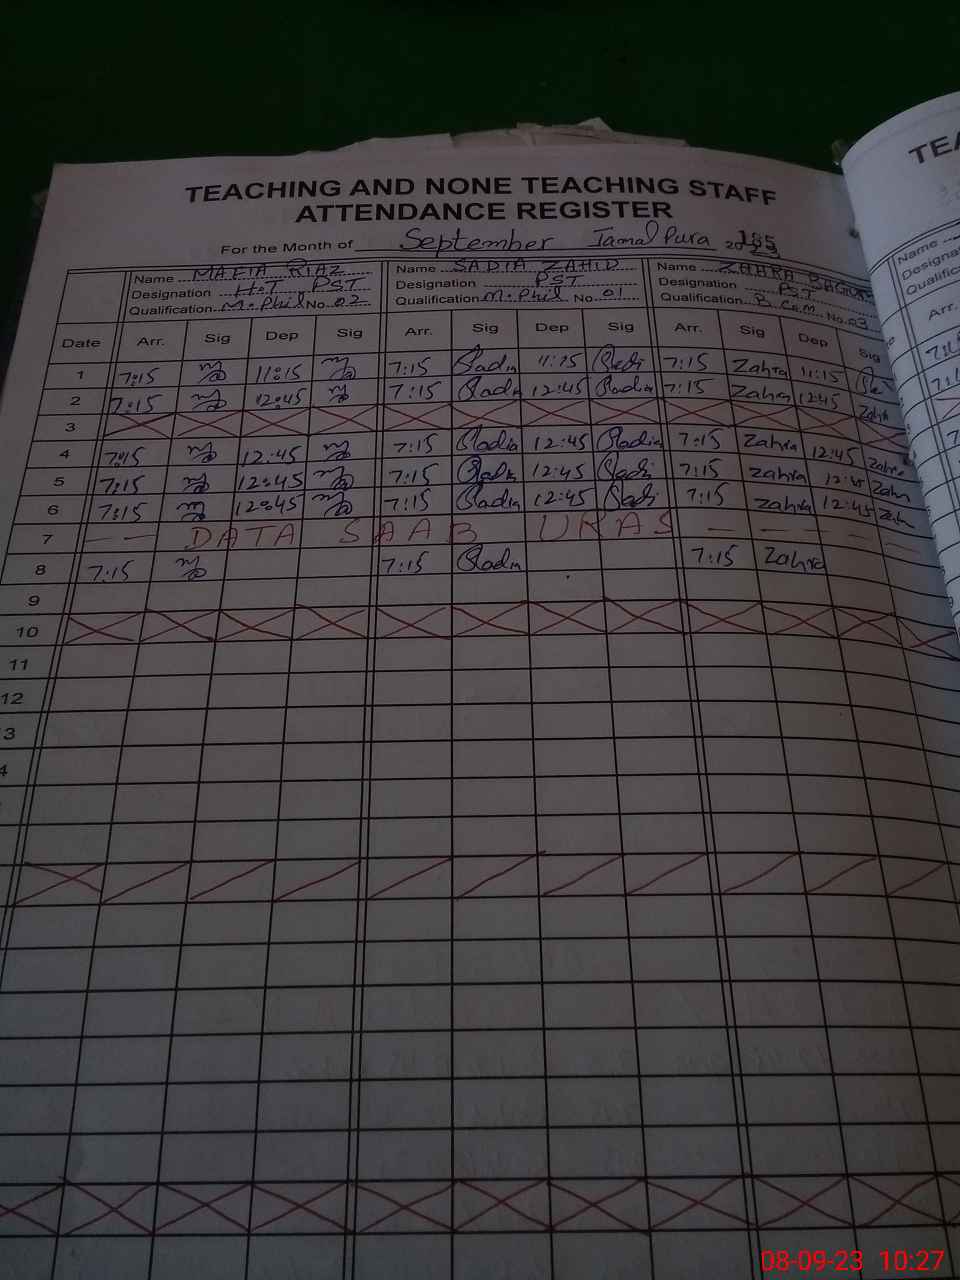 TEACHING AND NONE TEACHING STAFF
ATTENDANCE REGISTER
For the Month of September Jamal Pura 20
Name MAFIA RIAZ Name SADIA ZAHID Name ZAHRA
Designation H.T PST Designation PST Designation PST
Qualification M.Phil No 02 Qualification M.Phil No 01 Qualification B.Com No.03
Date Arr. Sig Dep Sig Arr. Sig Dep Sig Arr. Sig Dep Sig
1 7:15 11:15 7:15 Sadia 11:15 Sadi 7:15 Zahra 11:15
2 7:15 12:45 7:15 Sadia 12:45 Sadia 7:15 Zahra 12:45 Zahra
3
4 7:15 12:45 7:15 Sadia 12:45 Sadia 7:15 Zahra 12:45 Zahra
5 7:15 12:45 7:15 Sadia 12:45 Sadi 7:15 Zahra 12:45 Zahra
6 7:15 12:45 7:15 Sadia 12:45 Sadi 7:15 Zahra 12:45 Zahra
7 -- -- DATA SAAB URAS -- -- -- --
8 7:15 7:15 Sadia 7:15 Zahra
9
10
11
12
3
4
TEA
Name
Designa
Qualific
Arr.
08-09-23 10:27